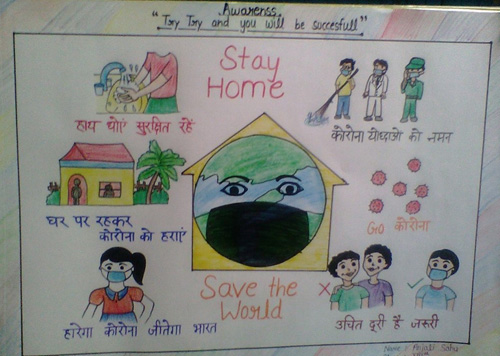 Awareness
"Try Try and you will be succesfull"
Stay
Home
हाथ धोएं सुरक्षित रहें
कोरोना योध्दाओ को नमन
घर पर रहकर
कोरोना को हराएं
Go कोरोना
Save the
World
हारेगा कोरोना जीतेगा भारत
उचित दूरी है जरूरी
Name : Anjali Sahu